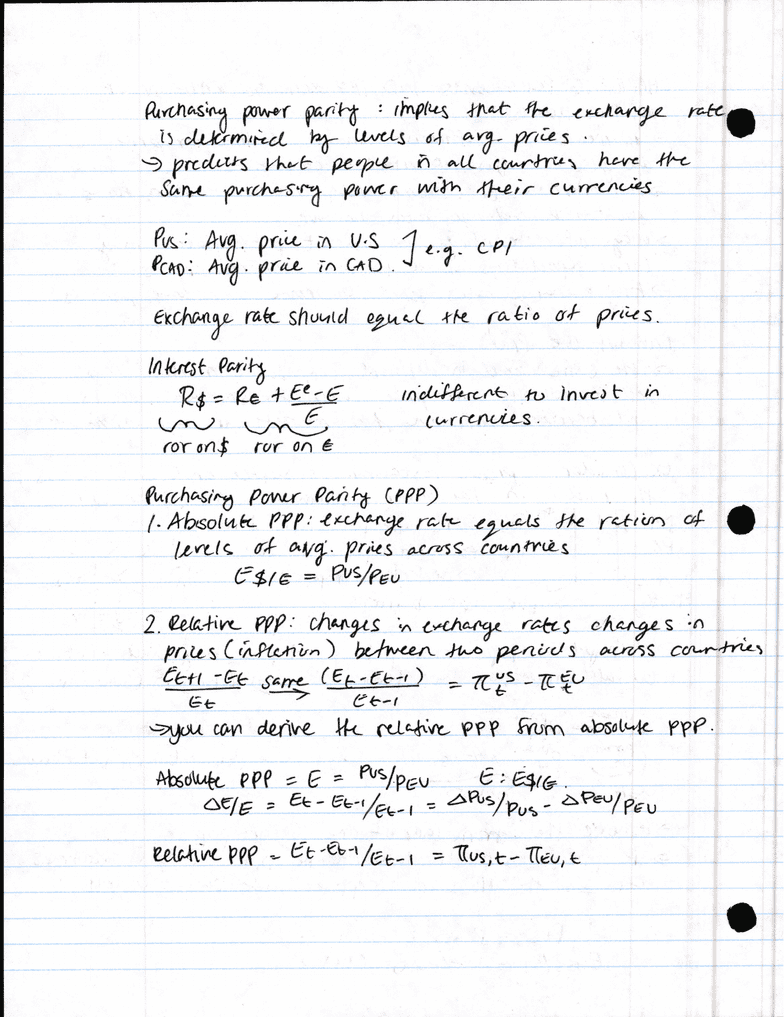 Purchasing power parity : implies that the exchange rate
is determined by levels of avg. prices.
→ predicts that people in all countries have the
same purchasing power with their currencies
PUS: Avg. price in U.S ] e.g. CPI
PCAD: Avg. price in CAD.
Exchange rate should equal the ratio of prices.
Interest Parity
R$ = R€ + (Eᵉ-E)/E indifferent to invest in
currencies.
ror on $ ror on €
Purchasing Power Parity (PPP)
1. Absolute PPP: exchange rate equals the ration of
levels of avg. prices across countries
E$/€ = PUS/PEU
2. Relative PPP: changes in exchange rates changes in
prices (inflation) between two periods across countries
(Et+1 - Et)/Et same → (Et - Et-1)/Et-1 = π^US_t - π^EU_t
→ you can derive the relative PPP from absolute PPP.
Absolute PPP = E = PUS/PEU E: E$/€.
ΔE/E = Et - Et-1/Et-1 = ΔPUS/PUS - ΔPEU/PEU
Relative PPP = Et - Et-1/Et-1 = πUS,t - πEU,t